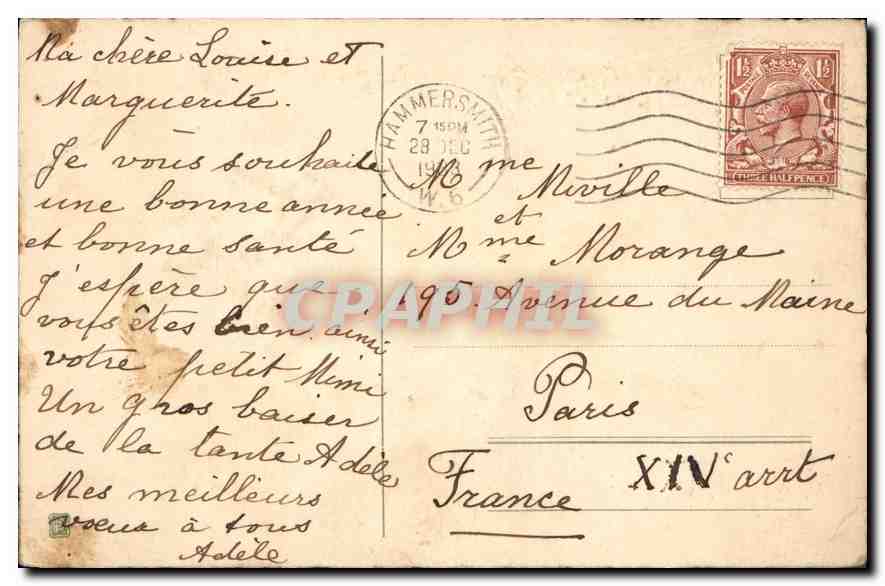 Ma chère Louise et
Marguerite.
Je vous souhaite
une bonne année
et bonne santé
J'espère que
vous êtes bien ainsi
votre petit Mimi
Un gros baiser
de la tante Adèle
Mes meilleurs
voeux à tous
Adèle
HAMMERSMITH
7 15PM
28 DEC
W. 6
1½ 1½
THREE HALFPENCE
Mme Miville
et
Mme Morange
195 Avenue du Maine
Paris
XIVe arrt
France
CPAPHIL